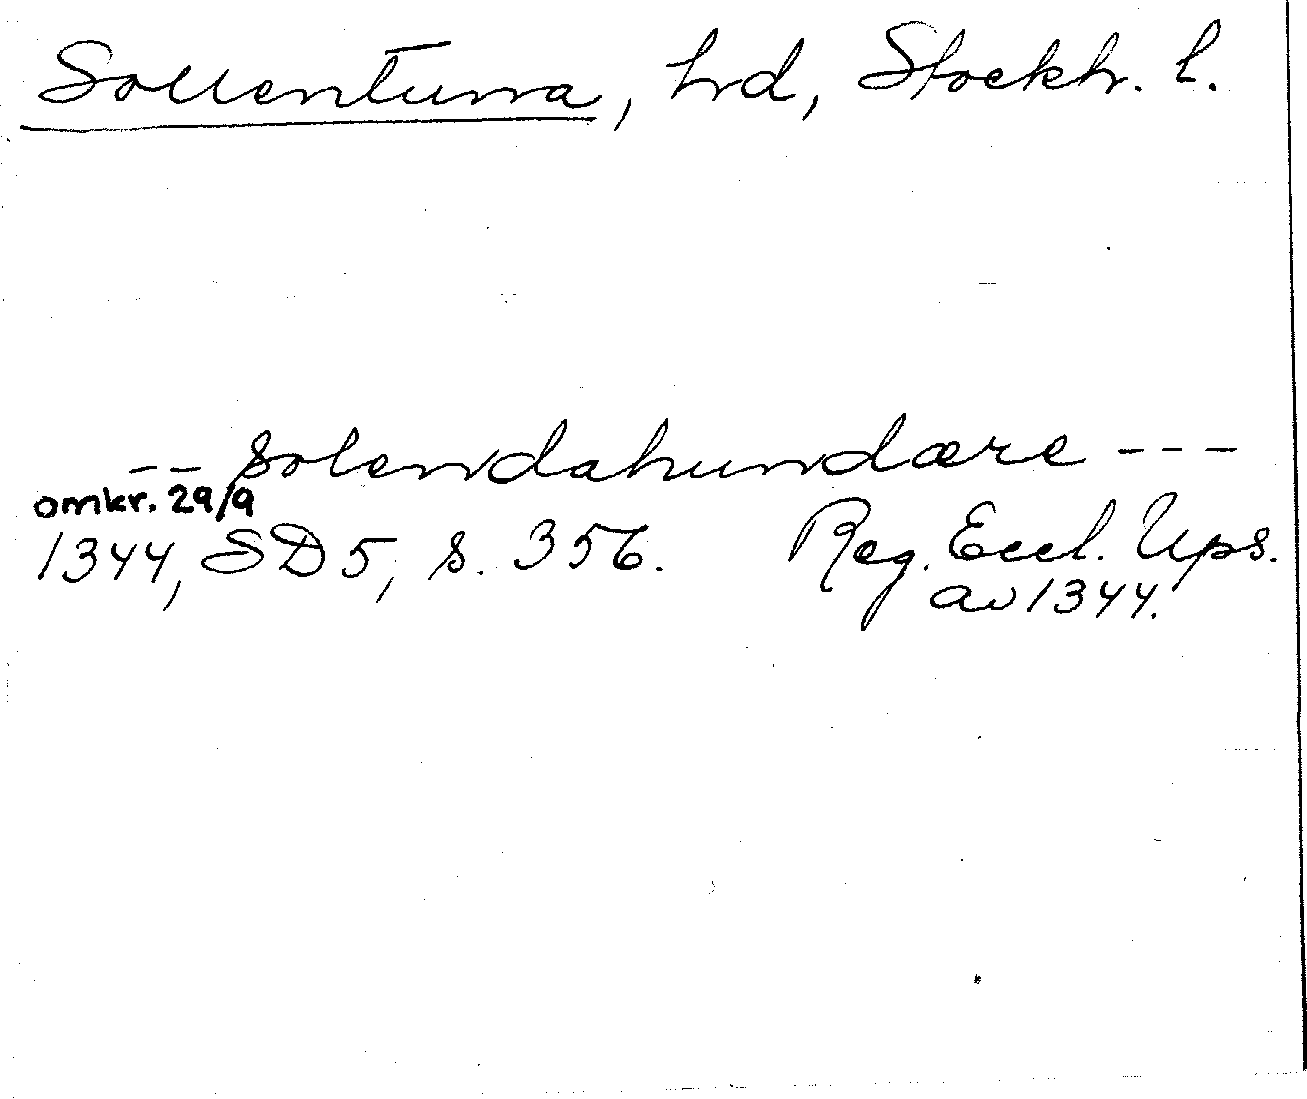 Sollentuna, hd, Stockh. l.
-- solendahundære ---
omkr. 29/9
1344, SD 5, s. 356. Reg. Eccl. Ups.
av 1344.